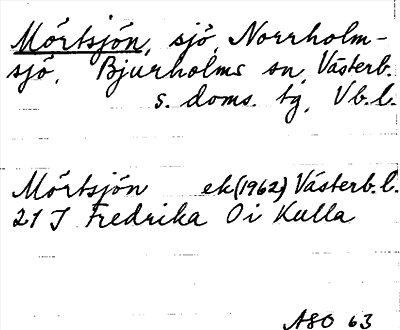 Mörtsjön, sjö, Norrholm-
sjö, Bjurholms sn, Västerb.
s. doms. tg, Vb.l.
Mörtsjön ek(1962) Västerb.l.
21 J Fredrika O i Kulla
ASO 63